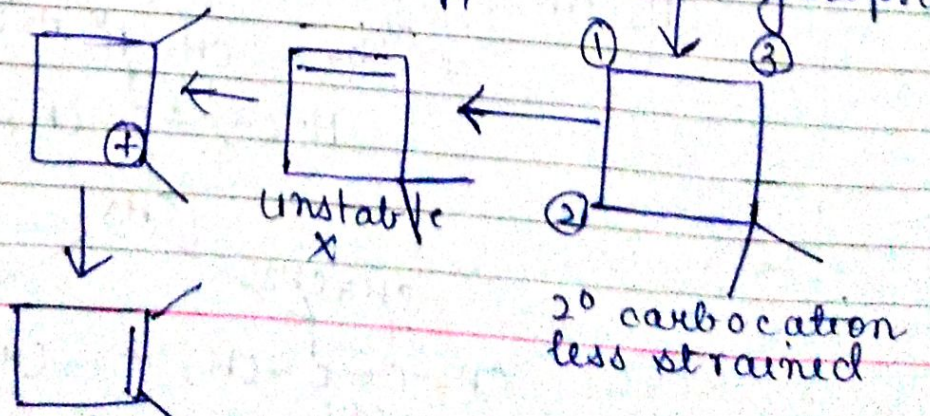 ① ③
⊕
unstable
X
②
2° carbocation
less strained